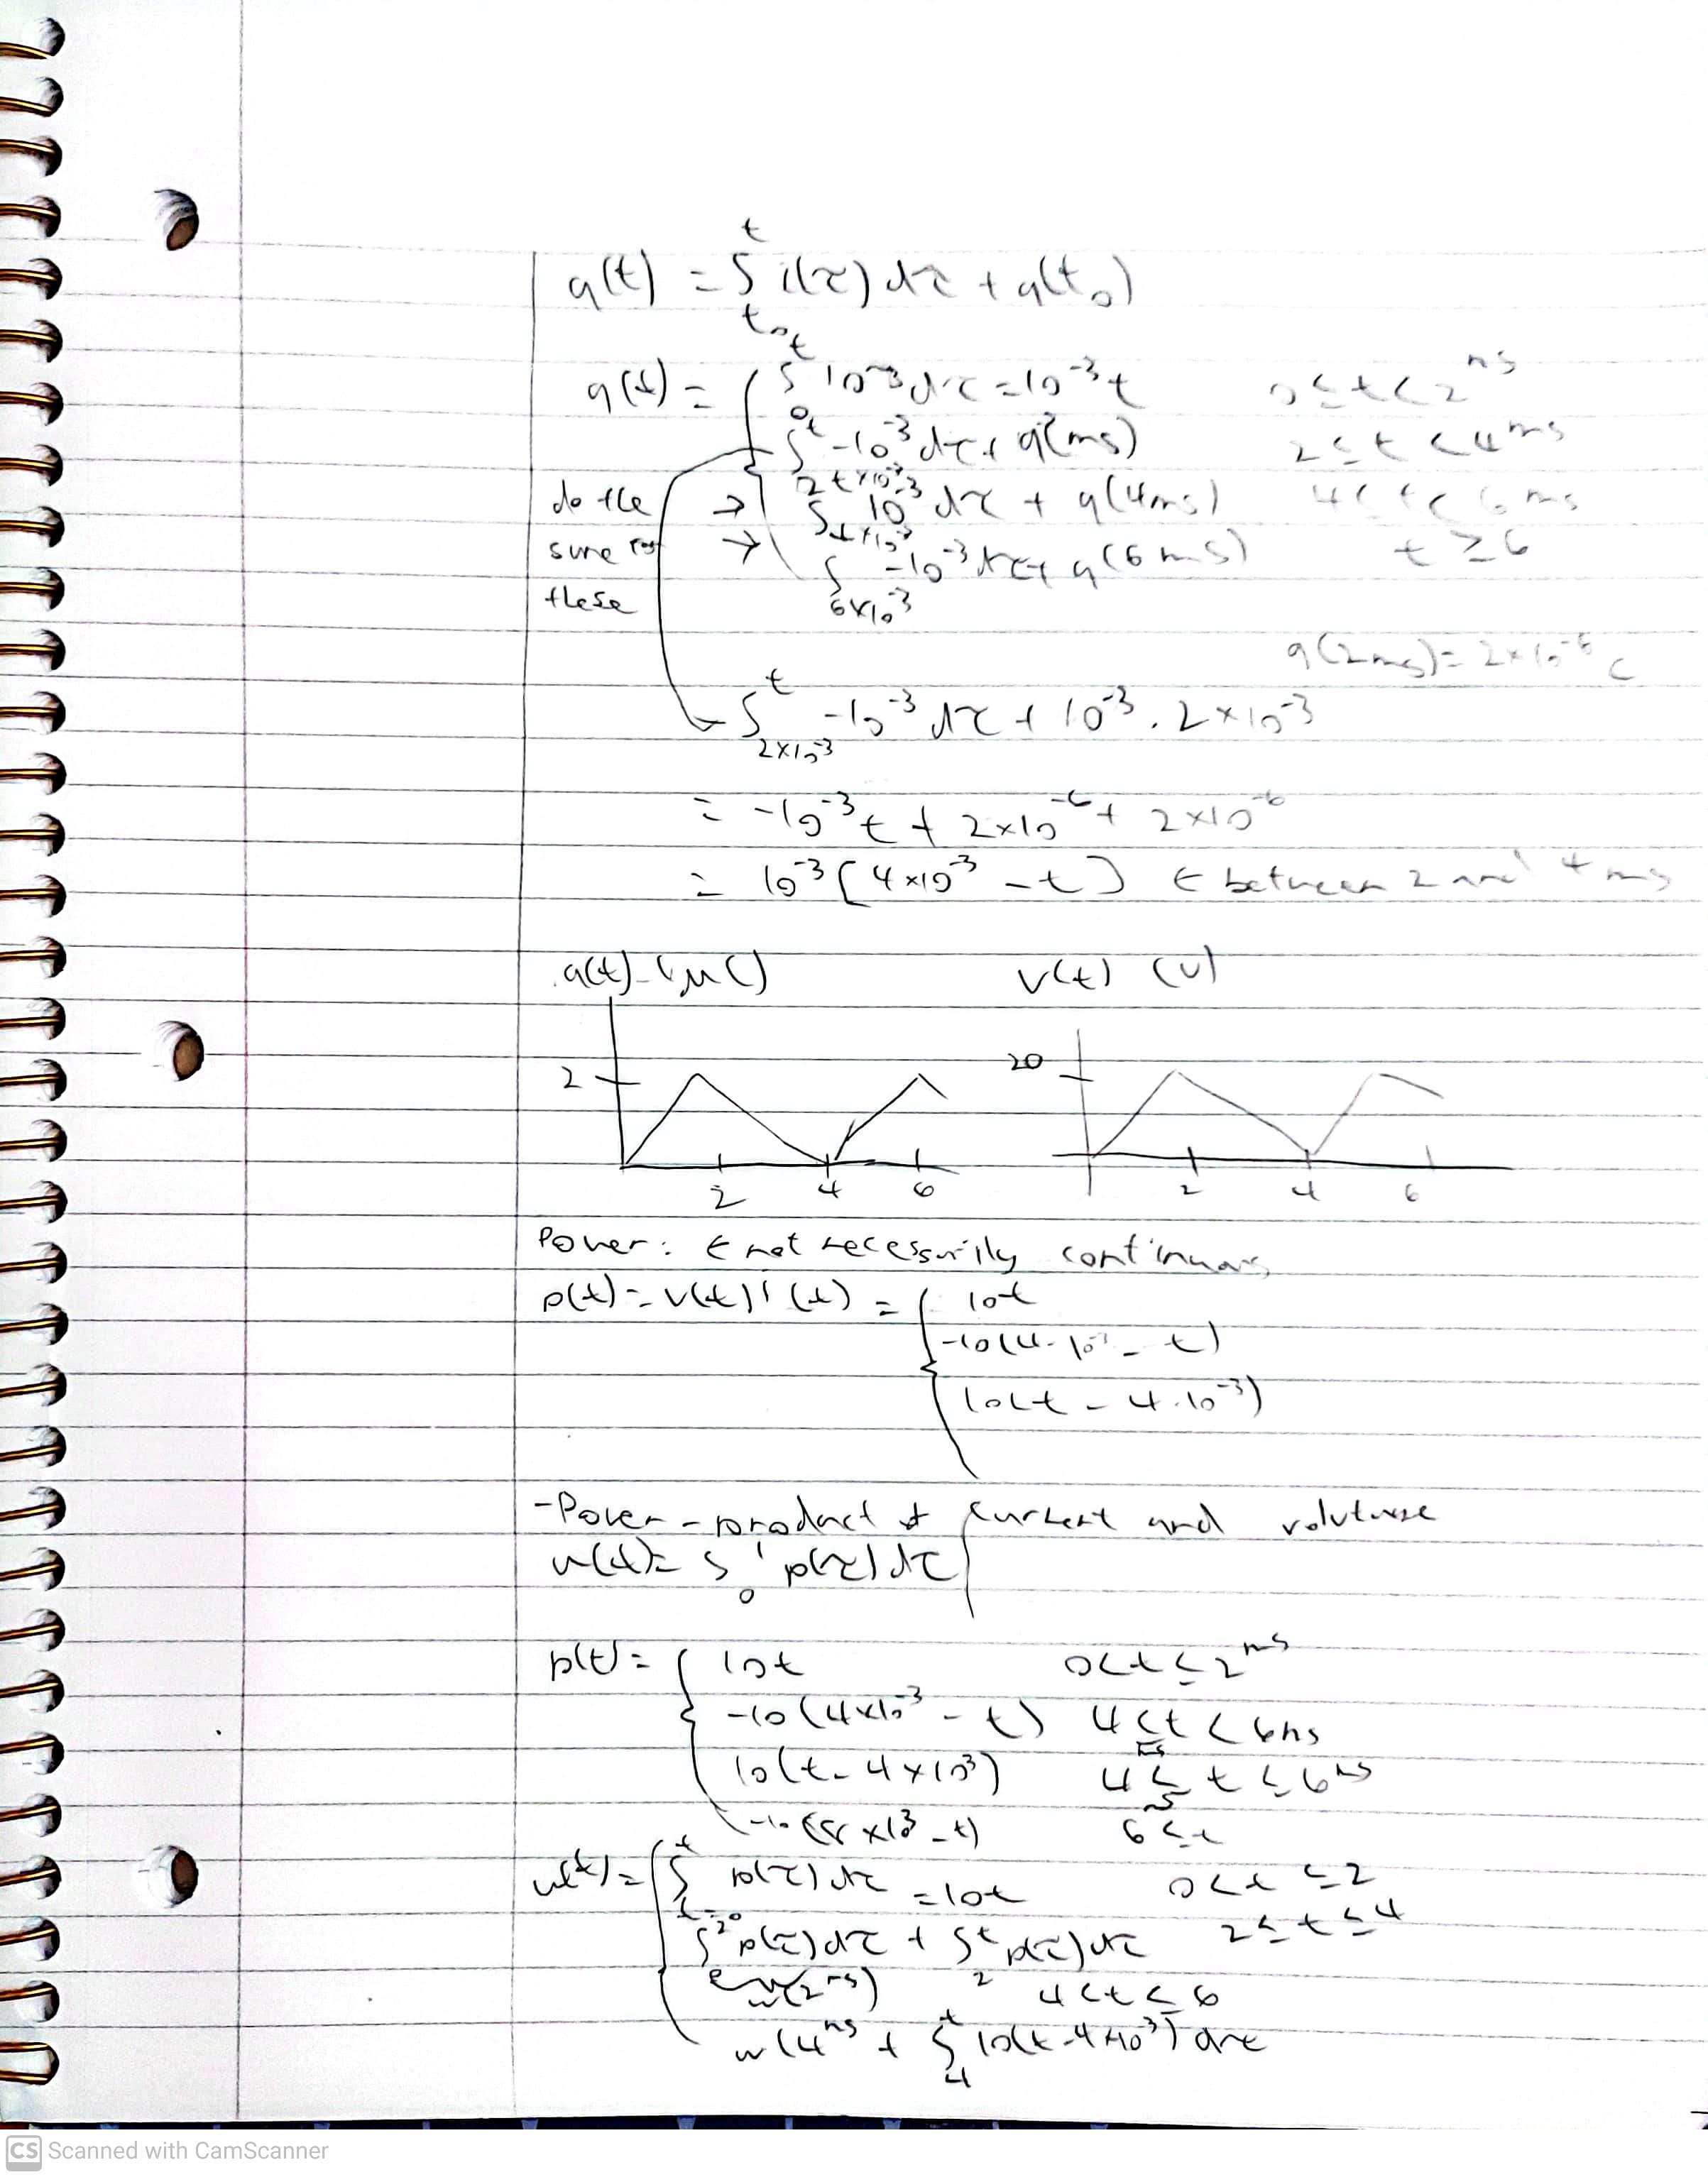 q(t) = ∫ₜ₀ᵗ i(τ) dτ + q(t₀)
q(t) = { ∫₀ᵗ 10⁻³ dτ = 10⁻³ t    0 ≤ t < 2 ms
∫ᵗ -10⁻³ dτ + q(2ms)    2 ≤ t < 4 ms
do the → ∫ 10⁻³ dτ + q(4ms)    4 < t < 6 ms
same for → ∫ -10⁻³ dτ + q(6 ms)    t ≥ 6
these 6×10⁻³
q(2ms) = 2×10⁻⁶ C
∫ᵗ -10⁻³ dτ + 10⁻³ . 2×10⁻³
2×10⁻³
= -10⁻³ t + 2×10⁻⁶ + 2×10⁻⁶
= 10⁻³ [4×10⁻³ - t] t between 2 and 4 ms
q(t) (μC)    v(t) (v)
2    20
2 4 6    2 4 6
Power: t not necessarily continuous
p(t) = v(t) i(t) = { 10t
-10(4·10⁻³ - t)
10(t - 4·10⁻³)
-Power - product of current and
w(t) = ∫₀ᵗ p(τ) dτ
p(t) = { 10t    0 < t ≤ 2 ms
-10(4×10⁻³ - t)    4 ≤ t < 6ms
10(t - 4×10⁻³)    4 ≤ t ≤ 6 ms
-10(8×10⁻³ - t)    6 ≤ t
w(t) = { ∫ᵗ p(τ) dτ = 10t    0 < t ≤ 2
∫² p(τ) dτ + ∫₂ᵗ p(τ) dτ    2 ≤ t ≤ 4
w(2 ms)    4 < t ≤ 6
w(4 ms + ∫₄ᵗ 10(t - 4×10⁻³) dτ
CS Scanned with CamScanner